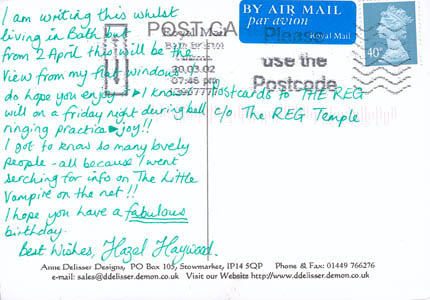 I am writing this whilst
living in Bath but
from 2 April this will be the
view from my flat windows. I
do hope you enjoy - I know I
will on a friday night during bell
ringing practice - joy!!
I got to know so many lovely
people - all because I went
serching for info on The Little
Vampire on the net!!
I hope you have a fabulous
birthday.
Best Wishes, Hazel Haywood.
POST CA
Royal Mail
30.03.02
07:45 pm
Please
use the
Postcode
BY AIR MAIL
par avion
Royal Mail
40
Postcards to THE REG
c/o The REG Temple
Anne Delisser Designs, PO Box 105, Stowmarket, IP14 5QP Phone & Fax: 01449 766276
e-mail: sales@ddelisser.demon.co.uk Visit our Website http://www.ddelisser.demon.co.uk